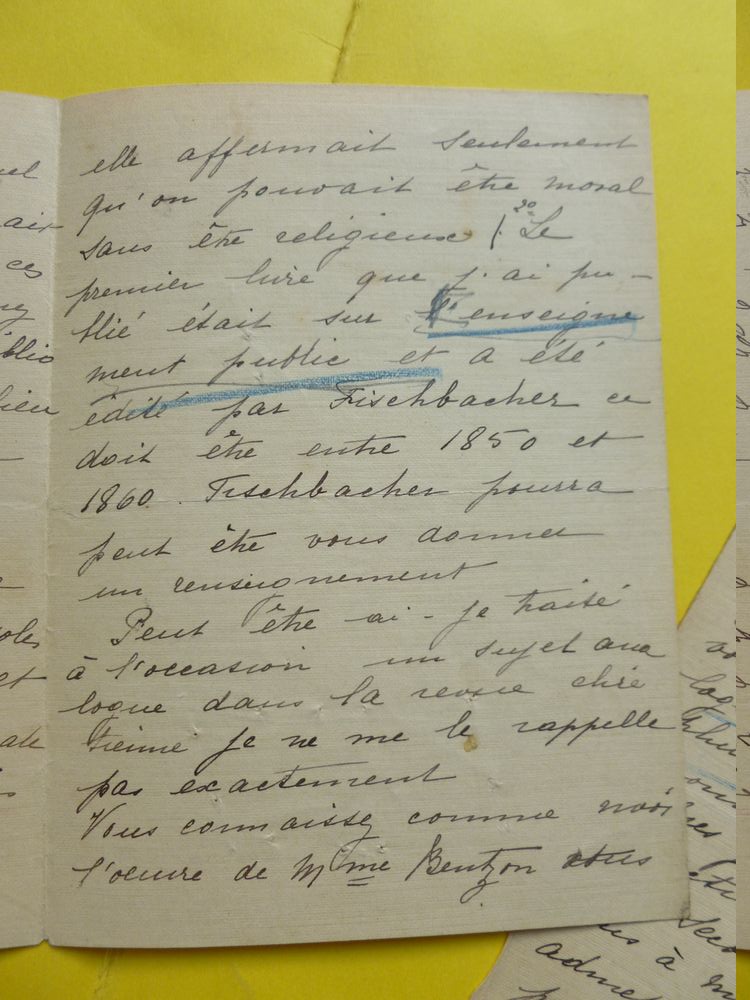 elle affermait seulement
qu'on pouvait être moral
sans être religieux (2º Le
premier livre que j'ai pu-
blié était sur l'enseigne
ment public et a été
édité par Fischbacher ce
doit être entre 1850 et
1860. Fischbacher pourra
peut être vous donner
un renseignement
Peut être ai-je traité
à l'occasion un sujet ana
logue dans la revue chré
tienne je ne me le rappelle
pas exactement
Vous connaissez comme moi
l'oeuvre de Mme Bentzon